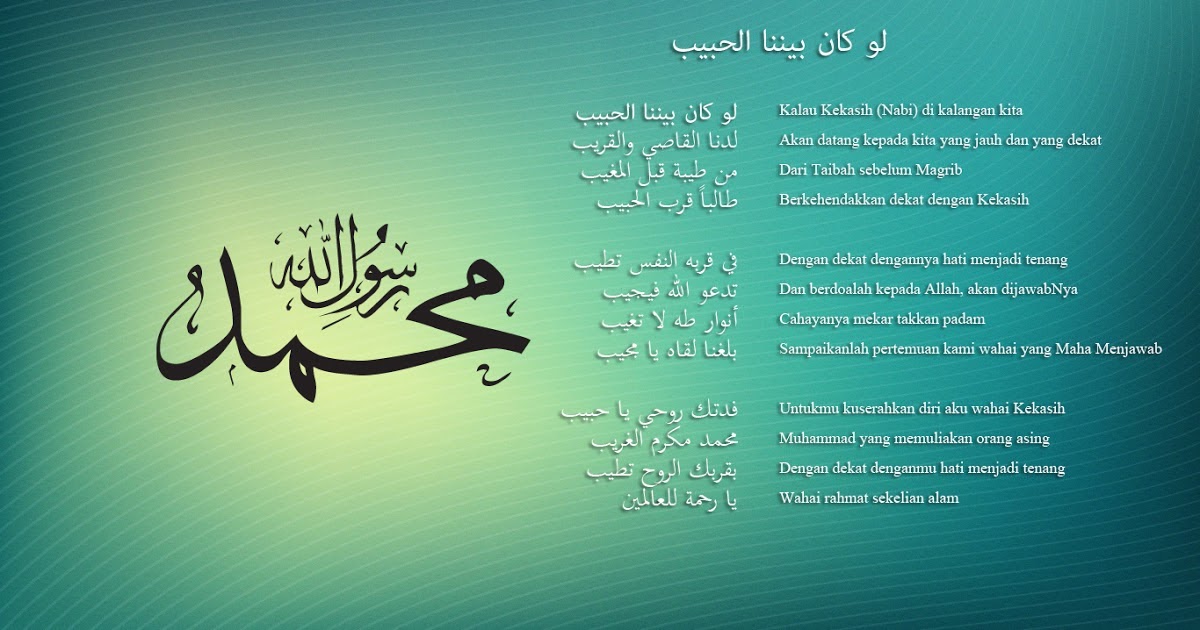 لو كان بيننا الحبيب
محمد رسول الله
لو كان بيننا الحبيب
لدنا القاصي والقريب
من طيبة قبل المغيب
طالباً قرب الحبيب
في قربه النفس تطيب
تدعو الله فيجيب
أنوار طه لا تغيب
بلغنا لقاه يا مجيب
فدتك روحي يا حبيب
محمد مكرم الغريب
بقربك الروح تطيب
يا رحمة للعالمين
Kalau Kekasih (Nabi) di kalangan kita
Akan datang kepada kita yang jauh dan yang dekat
Dari Taibah sebelum Magrib
Berkehendakkan dekat dengan Kekasih
Dengan dekat dengannya hati menjadi tenang
Dan berdoalah kepada Allah, akan dijawabNya
Cahayanya mekar takkan padam
Sampaikanlah pertemuan kami wahai yang Maha Menjawab
Untukmu kuserahkan diri aku wahai Kekasih
Muhammad yang memuliakan orang asing
Dengan dekat denganmu hati menjadi tenang
Wahai rahmat sekelian alam